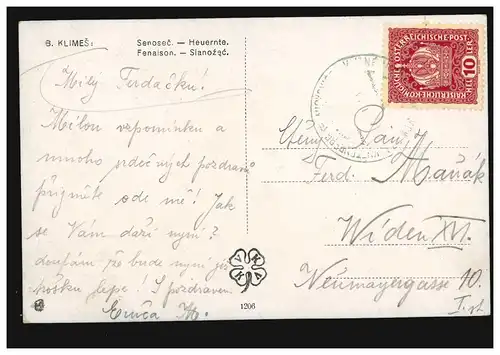 B. KLIMEŠ:
Senoseč. — Heuernte.
Fenaison. — Sianożąć.
Milý Ferdáčku!
Milou vzpomínku a
mnoho srdečných pozdravů
přijměte ode mě! Jak
se Vám daří nyní?
doufám že bude nyní
trošku lépe! S pozdravem
1206
KAISERLICHE KÖNIGLICHE ÖSTERREICHISCHE POST
10 HELLER
Ctěný Pán
Ferd. Maňák
Widen XVI.
Neumayergasse 10.
I. st